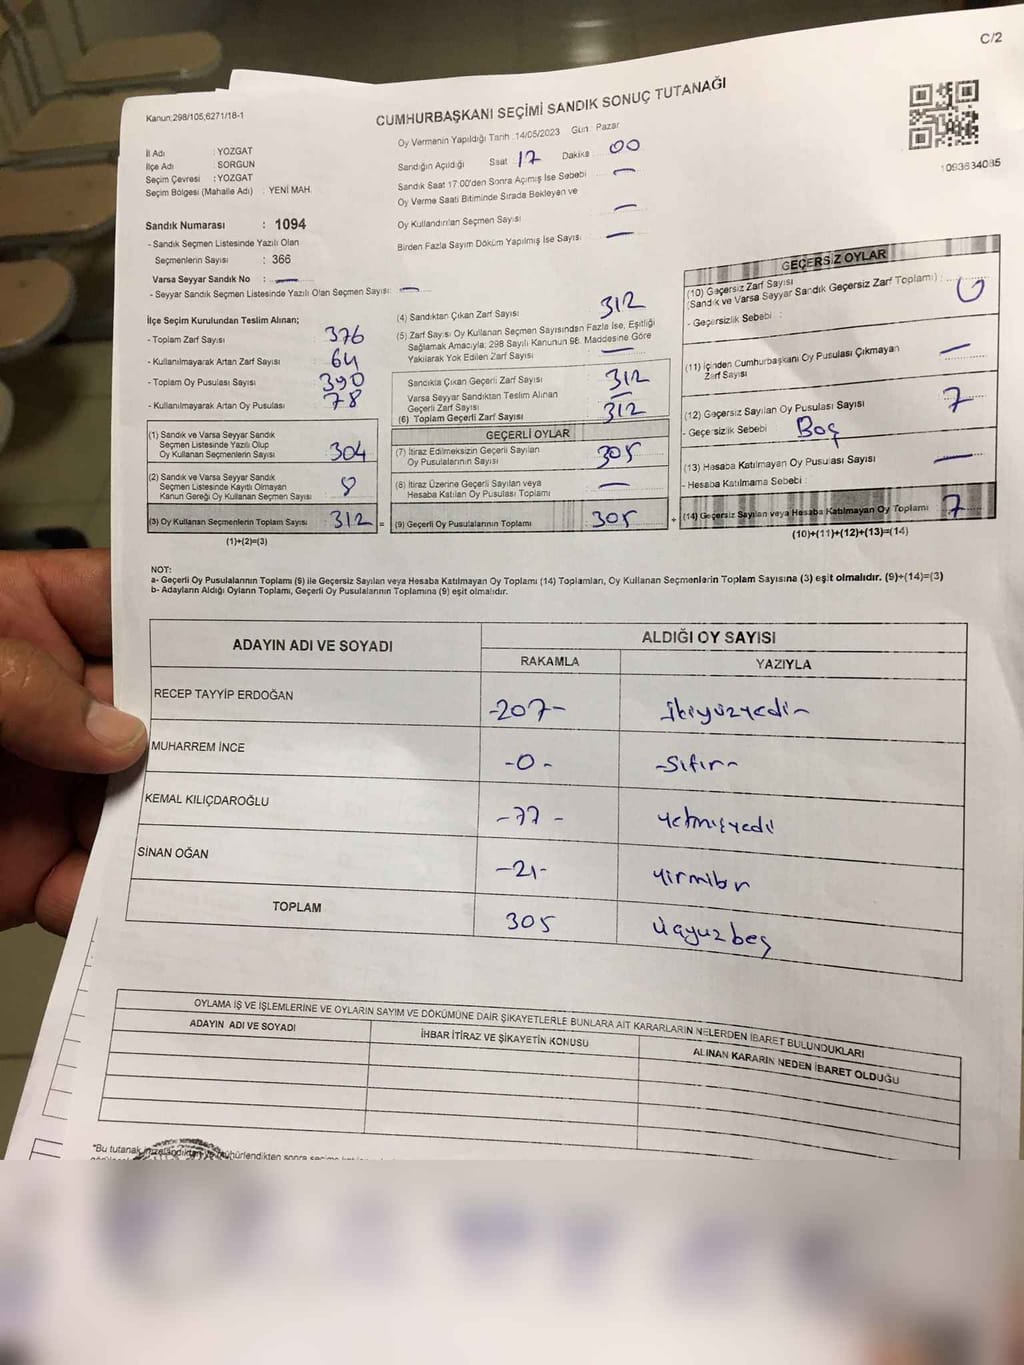 C/2
Kanun;298/105,6271/18-1
CUMHURBAŞKANI SEÇİMİ SANDIK SONUÇ TUTANAĞI
1093634085
İl Adı : YOZGAT
İlçe Adı : SORGUN
Seçim Çevresi : YOZGAT
Seçim Bölgesi (Mahalle Adı) : YENİ MAH.
Oy Vermenin Yapıldığı Tarih :14/05/2023 Gün : Pazar
Sandığın Açıldığı Saat : 17 Dakika : 00
Sandık Saat 17:00'den Sonra Açımış İse Sebebi : —
Oy Verme Saati Bitiminde Sırada Bekleyen ve
Oy Kullandırılan Seçmen Sayısı : —
Birden Fazla Sayım Döküm Yapılmış İse Sayısı : —
Sandık Numarası : 1094
- Sandık Seçmen Listesinde Yazılı Olan
Seçmenlerin Sayısı : 366
Varsa Seyyar Sandık No : —
- Seyyar Sandık Seçmen Listesinde Yazılı Olan Seçmen Sayısı: —
İlçe Seçim Kurulundan Teslim Alınan;
- Toplam Zarf Sayısı : 376
- Kullanılmayarak Artan Zarf Sayısı : 64
- Toplam Oy Pusulası Sayısı : 390
- Kullanılmayarak Artan Oy Pusulası : 78
(1) Sandık ve Varsa Seyyar Sandık
Seçmen Listesinde Yazılı Olup
Oy Kullanan Seçmenlerin Sayısı : 304
(2) Sandık ve Varsa Seyyar Sandık
Seçmen Listesinde Kayıtlı Olmayan
Kanun Gereği Oy Kullanan Seçmen Sayısı : 8
(3) Oy Kullanan Seçmenlerin Toplam Sayısı : 312 =
(1)+(2)=(3)
(4) Sandıktan Çıkan Zarf Sayısı : 312
(5) Zarf Sayısı Oy Kullanan Seçmen Sayısından Fazla İse, Eşitliği
Sağlamak Amacıyla; 298 Sayılı Kanunun 98. Maddesine Göre
Yakılarak Yok Edilen Zarf Sayısı : —
Sandıkta Çıkan Geçerli Zarf Sayısı : 312
Varsa Seyyar Sandıktan Teslim Alınan
Geçerli Zarf Sayısı : —
(6) Toplam Geçerli Zarf Sayısı : 312
GEÇERLİ OYLAR
(7) İtiraz Edilmeksizin Geçerli Sayılan
Oy Pusulalarının Sayısı : 305
(8) İtiraz Üzerine Geçerli Sayılan veya
Hesaba Katılan Oy Pusulası Toplamı : —
(9) Geçerli Oy Pusulalarının Toplamı : 305 +
GEÇERSİZ OYLAR
(10) Geçersiz Zarf Sayısı
(Sandık ve Varsa Seyyar Sandık Geçersiz Zarf Toplamı) : 0
- Geçersizlik Sebebi :
(11) İçinden Cumhurbaşkanı Oy Pusulası Çıkmayan
Zarf Sayısı : —
(12) Geçersiz Sayılan Oy Pusulası Sayısı : 7
- Geçersizlik Sebebi : Boş
(13) Hesaba Katılmayan Oy Pusulası Sayısı : —
- Hesaba Katılmama Sebebi :
(14) Geçersiz Sayılan veya Hesaba Katılmayan Oy Toplamı : 7
(10)+(11)+(12)+(13)=(14)
NOT:
a- Geçerli Oy Pusulalarının Toplamı (9) ile Geçersiz Sayılan veya Hesaba Katılmayan Oy Toplamı (14) Toplamları, Oy Kullanan Seçmenlerin Toplam Sayısına (3) eşit olmalıdır. (9)+(14)=(3)
b- Adayların Aldığı Oyların Toplamı, Geçerli Oy Pusulalarının Toplamına (9) eşit olmalıdır.
ADAYIN ADI VE SOYADI ALDIĞI OY SAYISI
RAKAMLA YAZIYLA
RECEP TAYYİP ERDOĞAN -207- ikiyüzyedi-
MUHARREM İNCE -0- -Sıfır-
KEMAL KILIÇDAROĞLU -77- yetmişyedi
SİNAN OĞAN -21- yirmibir
TOPLAM 305 üçyüzbeş
OYLAMA İŞ VE İŞLEMLERİNE VE OYLARIN SAYIM VE DÖKÜMÜNE DAİR ŞİKAYETLERLE BUNLARA AİT KARARLARIN NELERDEN İBARET BULUNDUKLARI
ADAYIN ADI VE SOYADI İHBAR İTİRAZ VE ŞİKAYETİN KONUSU ALINAN KARARIN NEDEN İBARET OLDUĞU
"Bu tutanak imzalandıktan ve mühürlendikten sonra